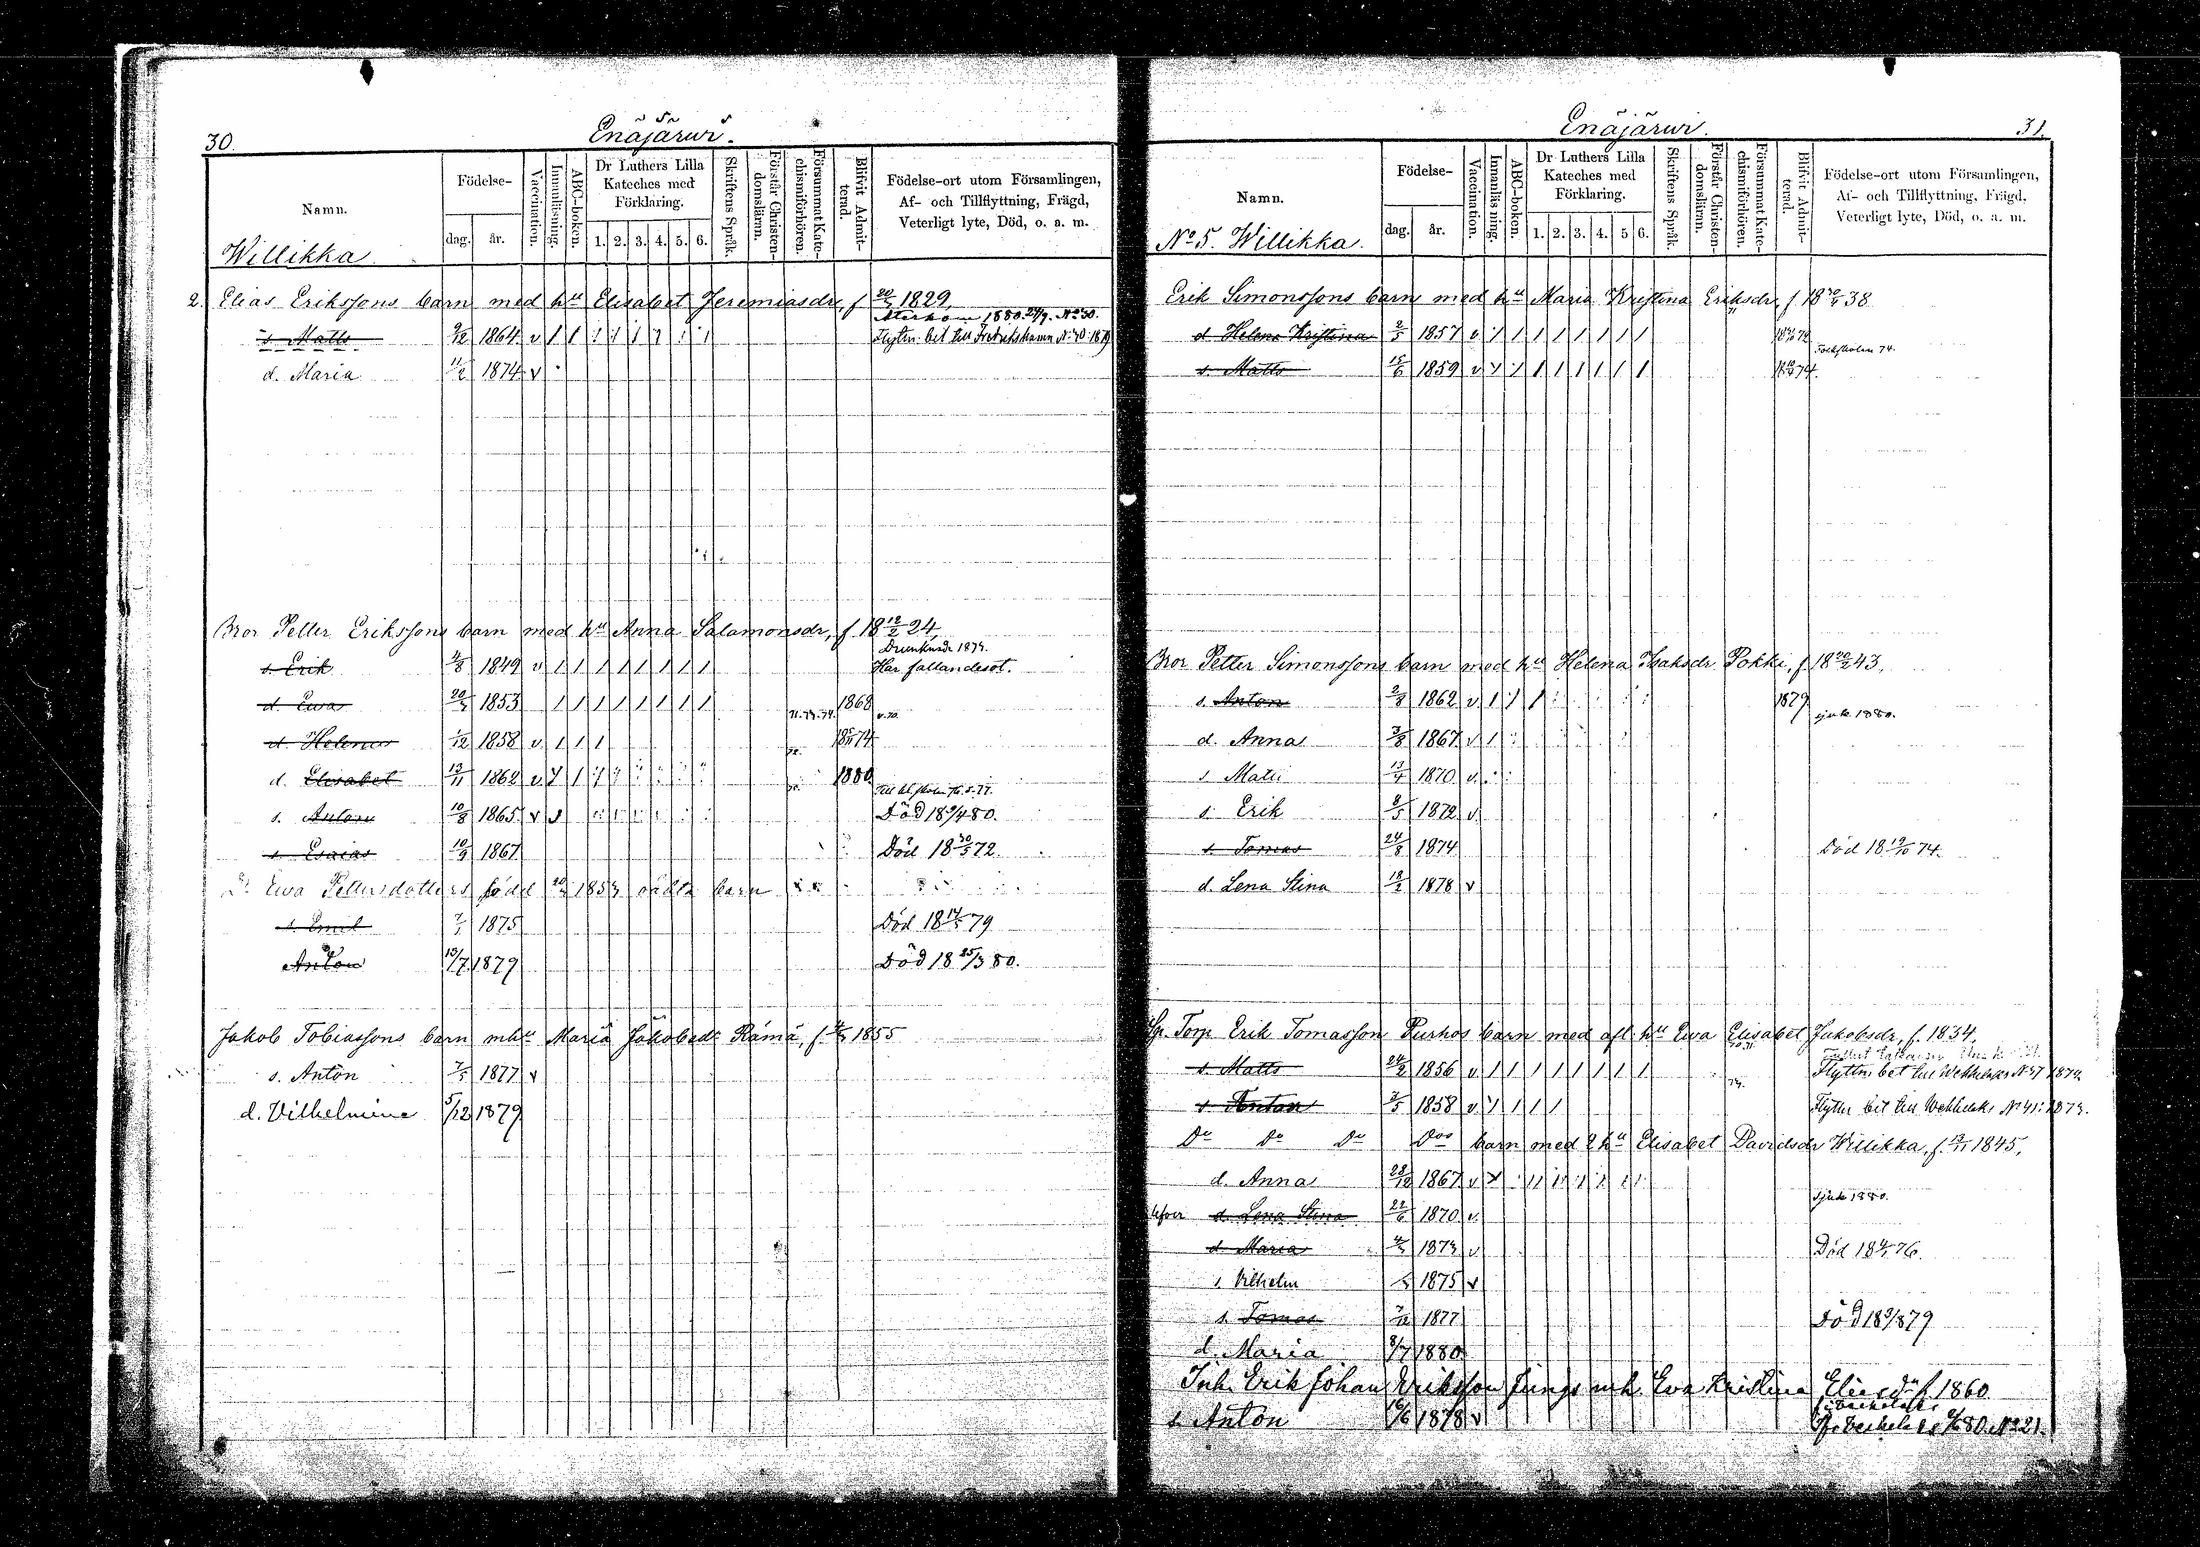 30.
Enäjärwi.
Namn.
Födelse-
dag.
år.
Vaccination.
Innanläsning.
ABC-boken.
Dr Luthers Lilla
Kateches med
Förklaring.
1. 2. 3. 4. 5. 6.
Skriftens Språk.
Förstår Christen-
domsläran.
Försummat Kate-
chismiförhören.
Blifvit Admit-
terad.
Födelse-ort utom Församlingen,
Af- och Tillflyttning, Frägd,
Veterligt lyte, Död, o. a. m.
Willikka
2. Elias Erikssons barn med hu Elisabet Jeremiasdr, f 1829.
Återkom 1880 No 30.
s. Matts 9/12 1864 v Flyttn. bet till Fredrikshamn No 30 1879
d. Maria 11/2 1874 v
Bror Petter Erikssons barn med hu Anna Salamonsdr, f. 18 12/2 24,
s. Erik 4/8 1849 v Har fallandesot.
d. Ewa 1853 71. 73. 74. 1868
d. Helena 1/12 1858 v
d. Elisabet 13/11 1862 v 1880
s. Anton 10/8 1865 v Död 18 9/4 80.
s. Esaias 10/9 1867 Död 18 30/5 72.
D. Ewa Pettersdotters född 1853 oäkta barn
s. Emil 1875 Död 79
Anton 13/7 1879 Död 18 25/3 80.
Jakob Tobiassons barn m hu Maria Jakobsdr Rämä, f. 1855
s. Anton 1877 v
d. Vilhelmina 5/12 1879
Enäjärwi.
31.
Namn.
Födelse-
dag.
år.
Vaccination.
Innanläsning.
ABC-boken.
Dr Luthers Lilla
Kateches med
Förklaring.
1. 2. 3. 4. 5 6.
Skriftens Språk.
Förstår Christen-
domsläran.
Försummat Kate-
chismiförhören.
Blifvit Admit-
terad.
Födelse-ort utom Församlingen,
Af- och Tillflyttning, Frägd,
Veterligt lyte, Död, o. a. m.
No 5. Willikka.
Erik Simonssons barn med hu Maria Kristina Eriksdr, f 38
d Helena Kristina 2/5 1857 v
Folkskolan 74.
s. Matts 15/6 1859 v
Bror Petter Simonssons barn med hu Helena Isaksdr Pokki, f 43,
s. Anton 2/8 1862 v 1879
sjuk 1880.
d. Anna 3/8 1867 v
s Matti 13/4 1870 v.
s Erik 8/5 1872 v
s. Tomas 24/8 1874 Död 18 19/10 74.
d. Lena Stina 18/2 1878 v
Torp Erik Tomasson Purhos barn med afl. hu Ewa Elisabet Jakobsdr, f. 1834,
s. Matts 24/2 1856 v Flyttn. bet till Wekkelaks
s Anton 3/5 1858 v Flyttn bet till Wekkelaks No 41: 1873.
Do Do Do Dos barn med 2 hu Elisabet Davidsdr Willikka, f. 1845,
d. Anna 28/12 1867 v
Sjuk 1880.
d. Lena Stina 22/6 1870 v.
d. Maria 1873 v Död 76.
s. Vilhelm 1875 v
s. Tomas 7/12 1877 Död 79
d. Maria 8/7 1880
Inh. Erik Johan Eriksson Jungs m h. Eva Kristina Eliasdr f. 1860
fr. Veckelaks
s. Anton 16/6 1878 v fr. Veckelaks 80 No 221.